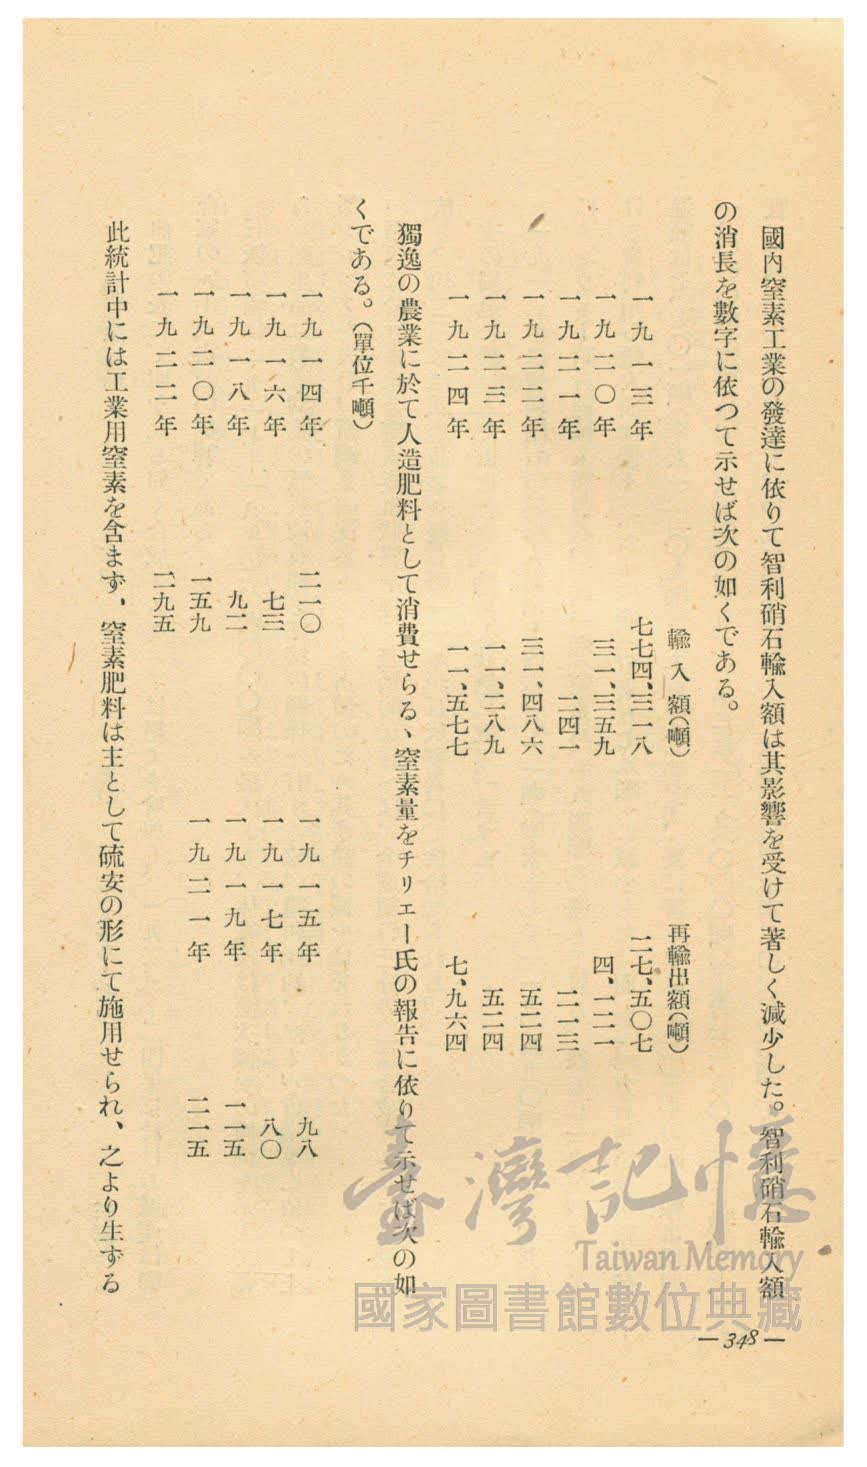 國內窒素工業の發達に依りて智利硝石輸入額は其影響を受けて著しく減少した。智利硝石輸入額
の消長を數字に依つて示せば次の如くである。
輸入額(噸) 再輸出額(噸)
一九一三年 七七四、三一八 二七、五〇七
一九二〇年 三一、三五九 四、一二一
一九二一年 二四一 二一三
一九二二年 三一、四八六 五二四
一九二三年 一一、二八九 五二四
一九二四年 一一、五七七 七、九六四
獨逸の農業に於て人造肥料として消費せらるゝ窒素量をチリェー氏の報告に依りて示せば次の如
くである。(單位千噸)
一九一四年 二一〇 一九一五年 九八
一九一六年 七三 一九一七年 八〇
一九一八年 九二 一九一九年 一一五
一九二〇年 一五九 一九二一年 二一五
一九二二年 二九五
此統計中には工業用窒素を含まず、窒素肥料は主として硫安の形にて施用せられ、之より生ずる
臺灣記憶
Taiwan Memory
國家圖書館數位典藏
—348—